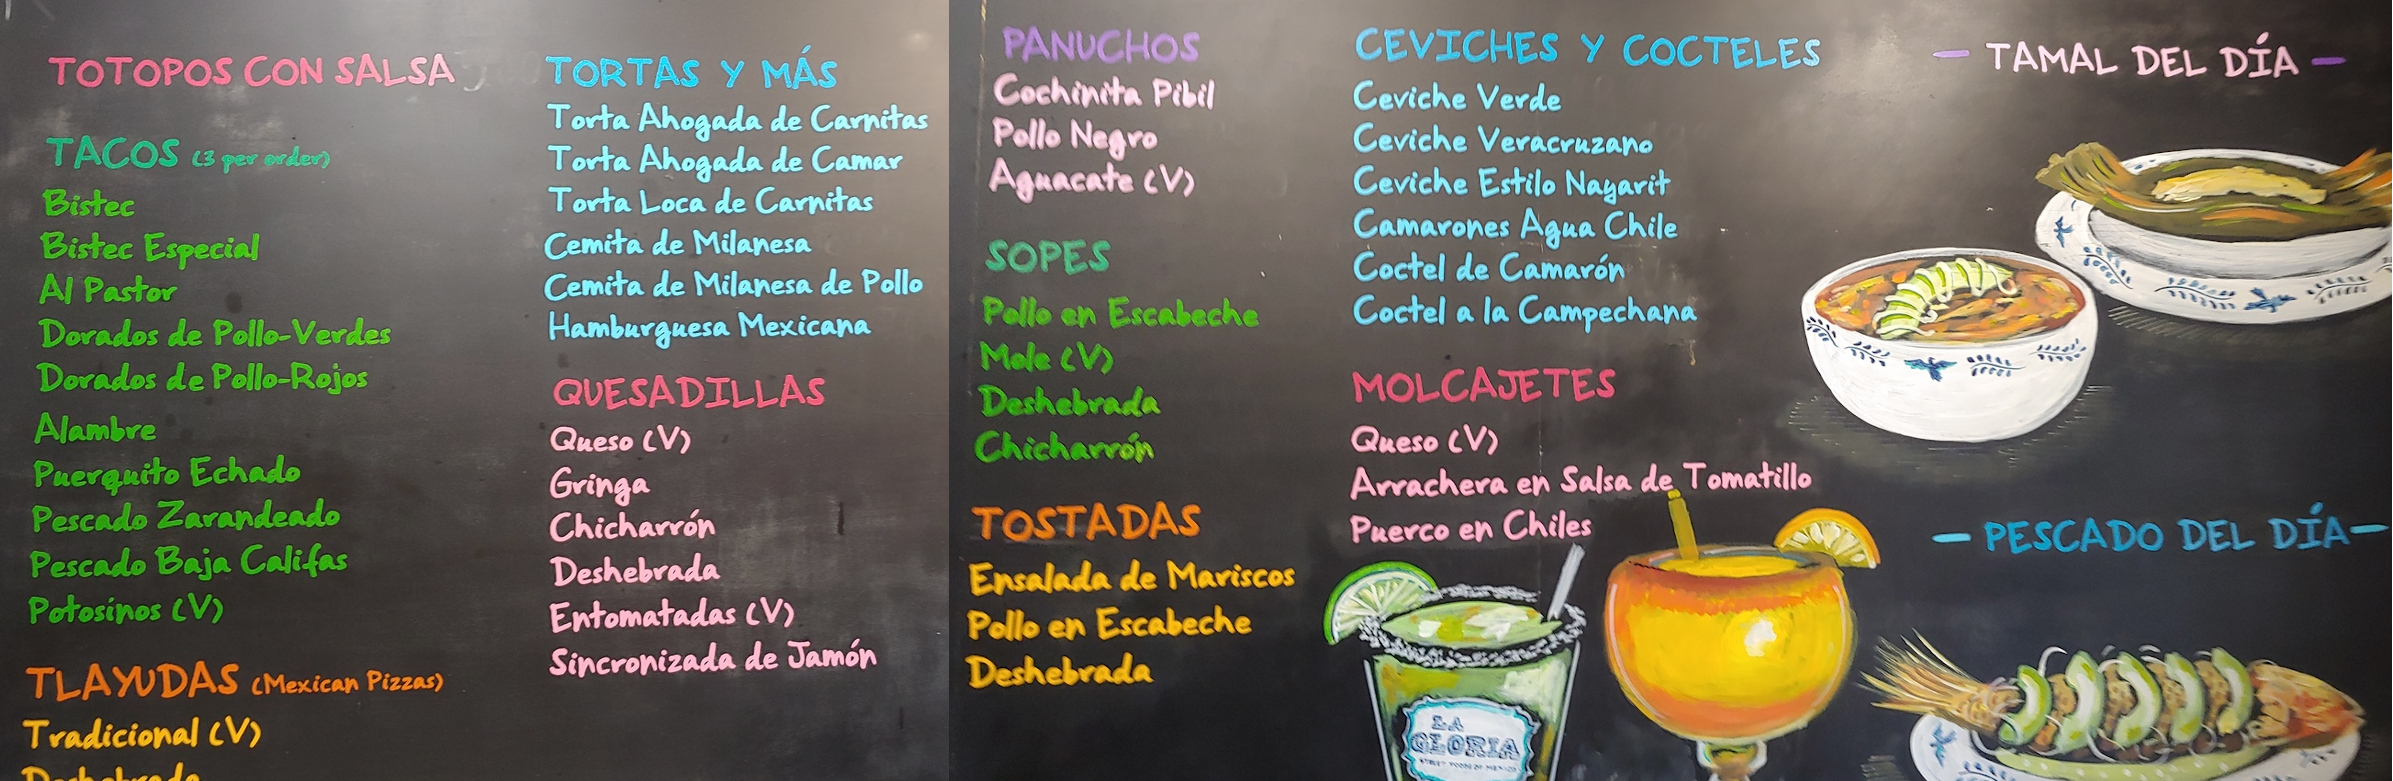 TOTOPOS CON SALSA
TACOS (3 per order)
Bistec
Bistec Especial
Al Pastor
Dorados de Pollo-Verdes
Dorados de Pollo-Rojos
Alambre
Puerquito Echado
Pescado Zarandeado
Pescado Baja Califas
Potosinos (V)
TLAYUDAS (Mexican Pizzas)
Tradicional (V)
Deshebrada
TORTAS Y MÁS
Torta Ahogada de Carnitas
Torta Ahogada de Camar
Torta Loca de Carnitas
Cemita de Milanesa
Cemita de Milanesa de Pollo
Hamburguesa Mexicana
QUESADILLAS
Queso (V)
Gringa
Chicharrón
Deshebrada
Entomatadas (V)
Sincronizada de Jamón
PANUCHOS
Cochinita Pibil
Pollo Negro
Aguacate (V)
SOPES
Pollo en Escabeche
Mole (V)
Deshebrada
Chicharrón
TOSTADAS
Ensalada de Mariscos
Pollo en Escabeche
Deshebrada
CEVICHES Y COCTELES
Ceviche Verde
Ceviche Veracruzano
Ceviche Estilo Nayarit
Camarones Agua Chile
Coctel de Camarón
Coctel a la Campechana
MOLCAJETES
Queso (V)
Arrachera en Salsa de Tomatillo
Puerco en Chiles
LA
GLORIA
STREET FOODS OF MEXICO
— TAMAL DEL DÍA —
— PESCADO DEL DÍA —